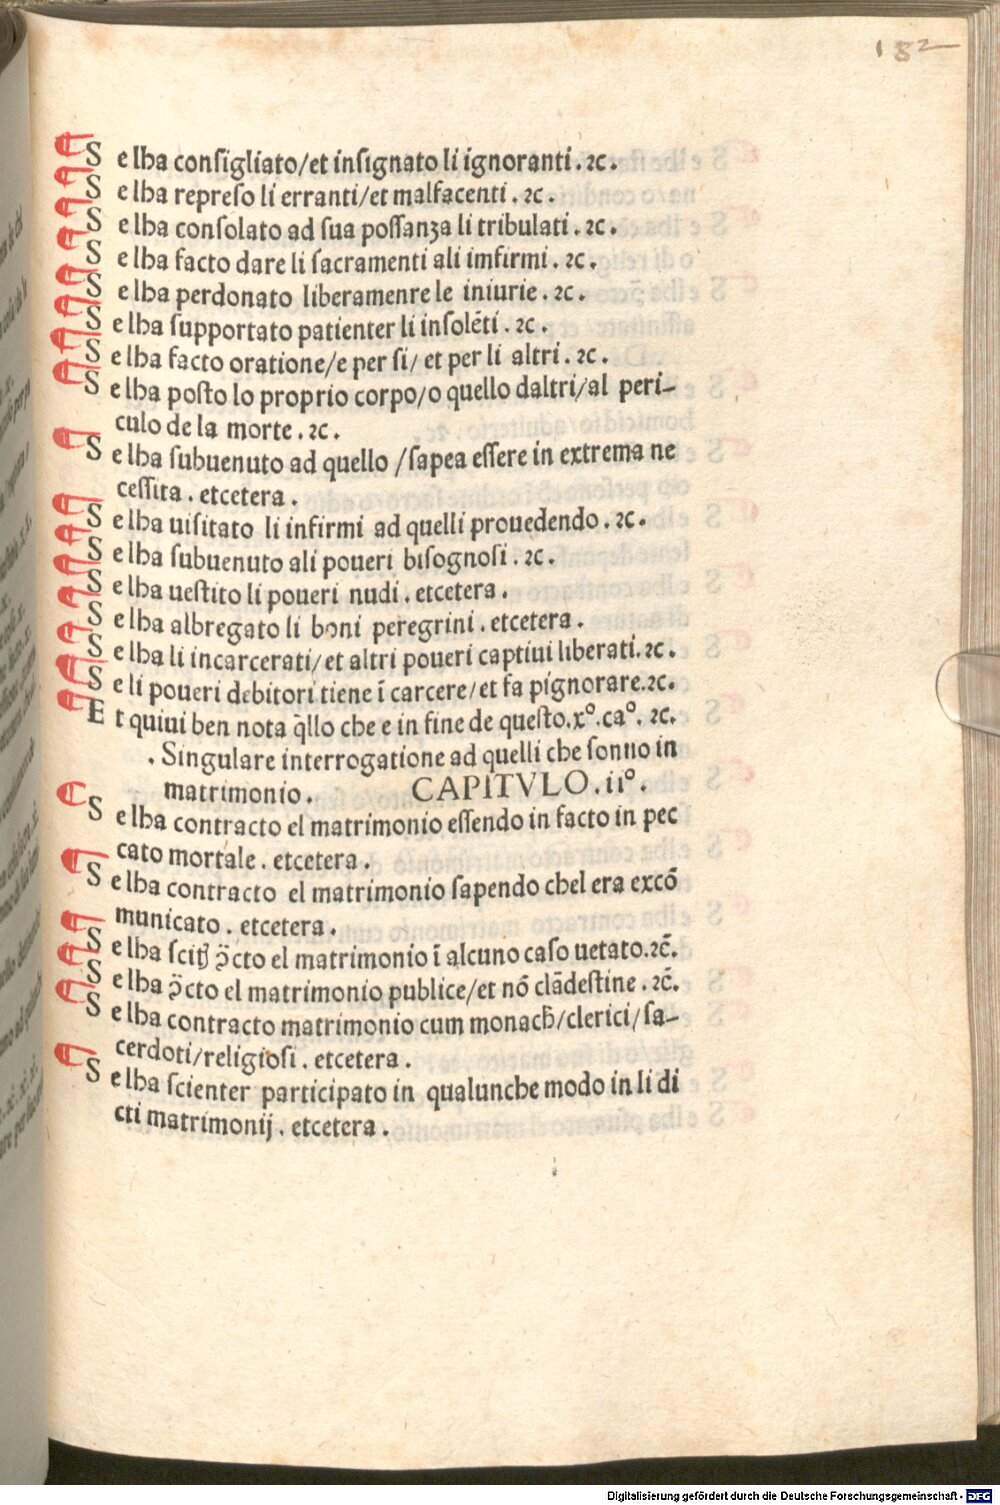 182
¶ S e lha consigliato/et insignato li ignoranti . ⁊c .
¶ S e lha represo li erranti/et malfacenti . ⁊c .
¶ S e lha consolato ad sua possanza li tribulati . ⁊c .
¶ S e lha facto dare li sacramenti ali imfirmi . ⁊c .
¶ S e lha perdonato liberamenre le iniurie . ⁊c .
¶ S e lha supportato patienter li insolēti . ⁊c .
¶ S e lha facto oratione/e per si/ et per li altri . ⁊c .
¶ S e lha posto lo proprio corpo/o quello daltri/al peri-
culo de la morte . ⁊c .
¶ S e lha subuenuto ad quello /sapea essere in extrema ne
cessita . etcetera .
¶ S e lha uisitato li infirmi ad quelli prouedendo . ⁊c .
¶ S e lha subuenuto ali poueri bisognosi . ⁊c .
¶ S e lha uestito li poueri nudi . etcetera .
¶ S e lha albregato li boni peregrini . etcetera .
¶ S e lha li incarcerati/et altri poueri captiui liberati. ⁊c .
¶ S e li poueri debitori tiene ī carcere/et fa pignorare.⁊c.
¶ E t quiui ben nota q̄llo che e in fine de questo.xº.caº. ⁊c.
. Singulare interrogatione ad quelli che sonno in
matrimonio . CAPITVLO . iiº .
¶ S e lha contracto el matrimonio essendo in facto in pec
cato mortale . etcetera .
¶ S e lha contracto el matrimonio sapendo chel era excō
municato . etcetera .
¶ S e lha scitꝫ ꝯ̄cto el matrimonio ī alcuno caso uetato.⁊c̄.
¶ S e lha ꝯ̄cto el matrimonio publice/et nō clādestine . ⁊c̄.
¶ S e lha contracto matrimonio cum monach̄/clerici/sa-
cerdoti/religiosi . etcetera .
¶ S e lha scienter participato in qualunche modo in li di
cti matrimonij . etcetera .
Digitalisierung gefördert durch die Deutsche Forschungsgemeinschaft - DFG